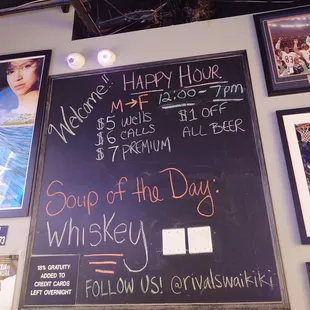 Welcome!!
HAPPY HOUR
M→F 12:00-7pm
$5 wells
$6 CALLS
$7 PREMIUM
$1 OFF
ALL BEER
Soup of the Day:
WHISKEY
18% GRATUITY
ADDED TO
CREDIT CARDS
LEFT OVERNIGHT
FOLLOW US! @rivalswaikiki